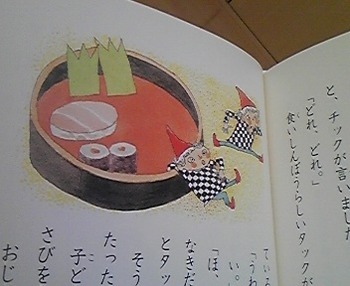 と、チックが言いました
「どれ、どれ。」
食いしんぼうらしいタックが
「うわ
い。
「ほ、
なきだ
とタッ
そう
たった
子ど
さびを
おじ